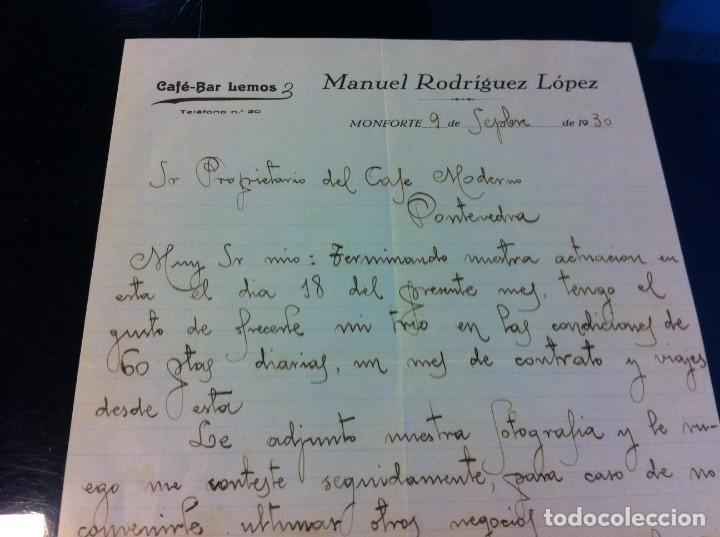 Café-Bar Lemos 3
Teléfono n.º 20
Manuel Rodríguez López
MONFORTE 9 de Sepbre de 1930
Sr Propietario del Cafe Moderno
Pontevedra
Muy Sr mio: Terminando nuestra actuacion en
esta el dia 18 del presente mes, tengo el
gusto de ofrecerle mi trio en las condiciones de
60 ptas diarias, un mes de contrato y viajes
desde esta
Le adjunto nuestra fotografia y le ru-
ego me conteste seguidamente, para caso de no
convenirle ultimar otros negocios
todocoleccion.net